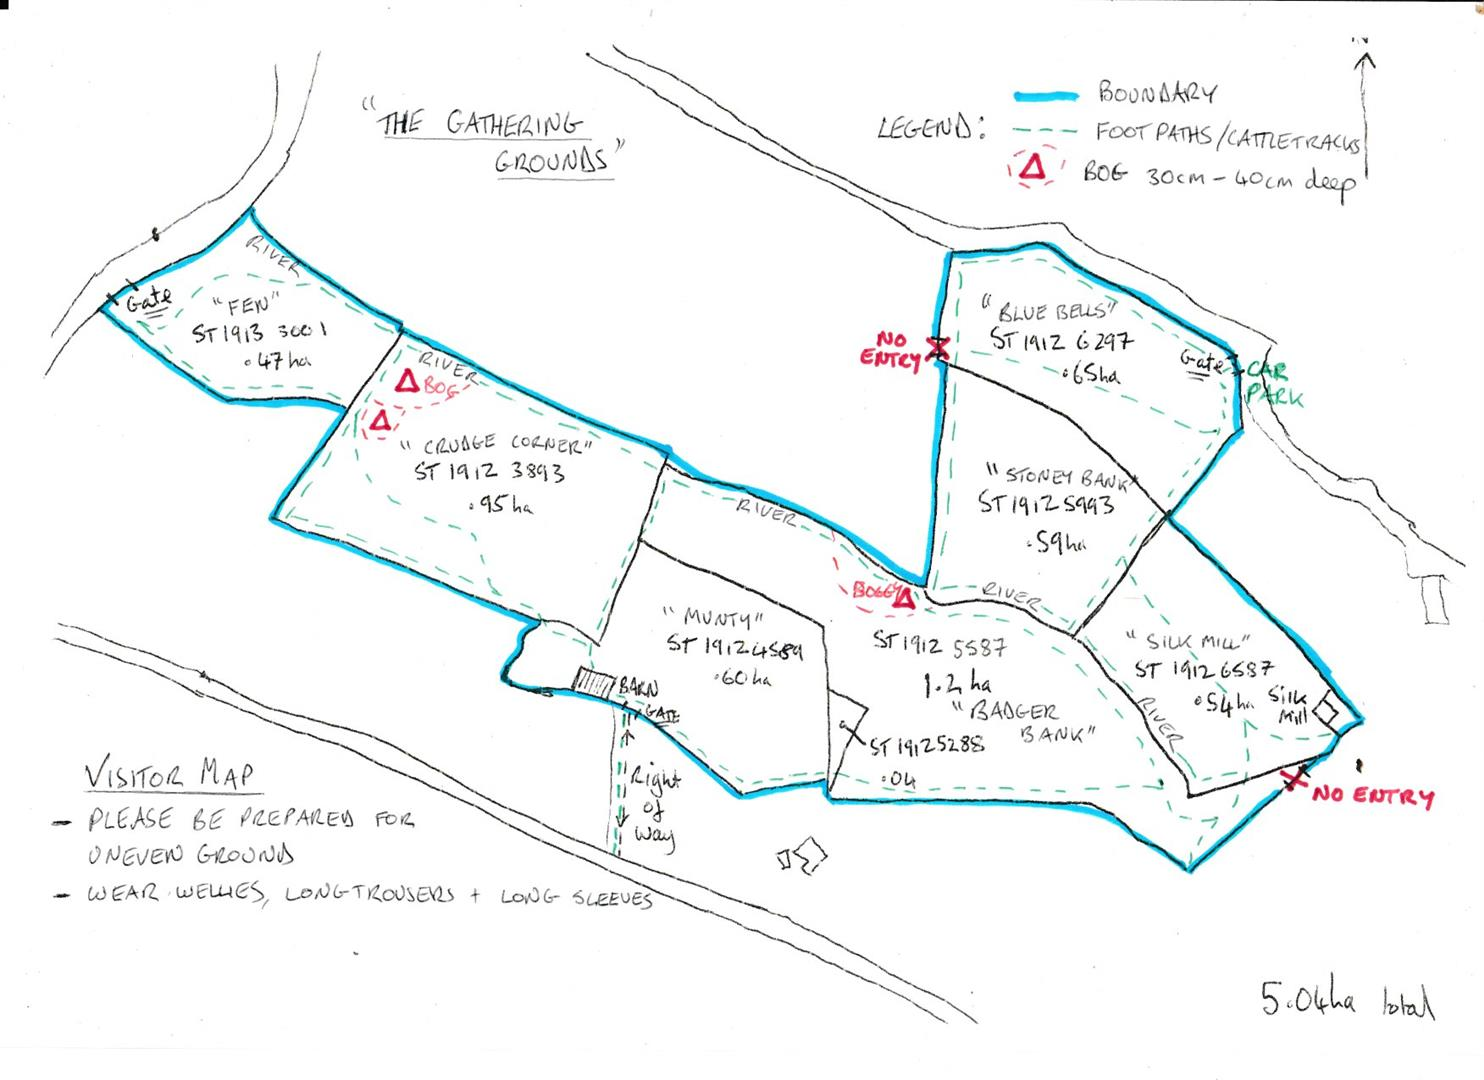 "THE GATHERING
GROUNDS"
N
LEGEND:
BOUNDARY
FOOT PATHS/CATTLETRACKS
BOG 30cm - 40cm deep
RIVER
Gate
"FEN"
ST 1913 3001
.47ha
RIVER
BOG
"CRUDGE CORNER"
ST 1912 3893
.95ha
NO
ENTRY
"BLUE BELLS"
ST 1912 6297
.65ha
Gate
CAR
PARK
"STONEY BANK"
ST 1912 5993
.59ha
RIVER
BOGGY
RIVER
"MUNTY"
ST 1912 4589
.60ha
ST 1912 5587
1.2 ha
"BADGER
BANK"
ST 1912 5288
.04
"SILK MILL"
ST 1912 6587
.54ha
SILK
MILL
RIVER
NO ENTRY
BARN
GATE
Right
of
Way
VISITOR MAP
- PLEASE BE PREPARED FOR
UNEVEN GROUND
- WEAR WELLIES, LONG TROUSERS + LONG SLEEVES
5.04ha total